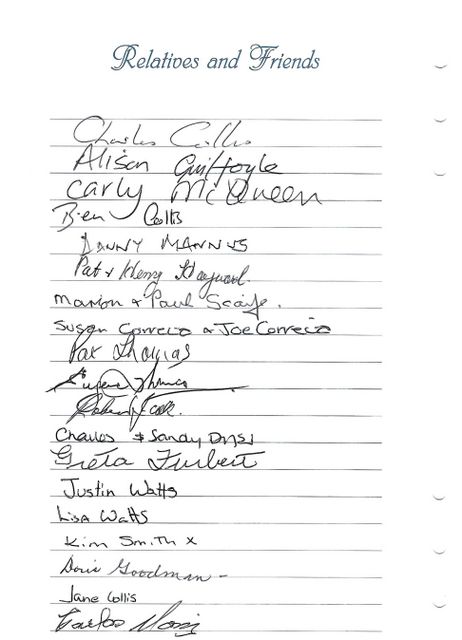 Relatives and Friends
Charles Collis
Alison Guilfoyle
Carly McQueen
Ben Collis
DANNY MANNUS
Pat & Henry Hayward.
Marion & Paul Scaife.
Susan Correia & Joe Correia
Pat Thomas
Eugene Thomas
Charles & Sandy
Greta Furbert
Justin Watts
Lisa Watts
Kim Smith x
Doris Goodman -
Jane Collis